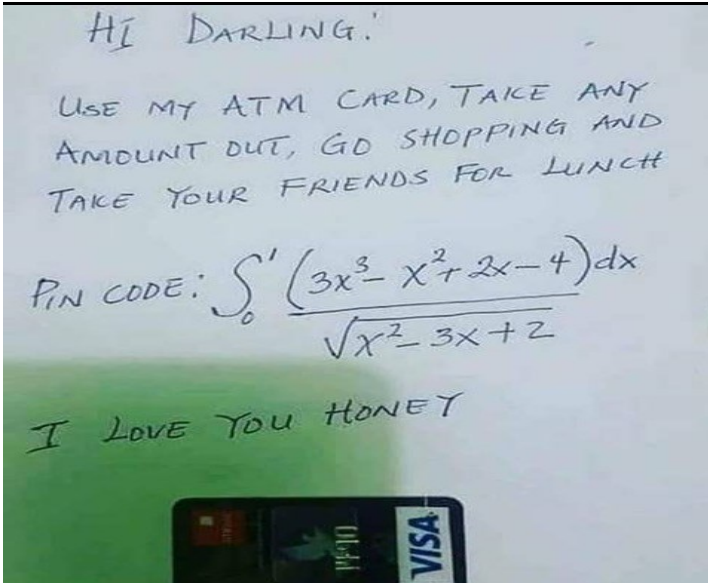 HI DARLING.'
USE MY ATM CARD, TAKE ANY
AMOUNT OUT, GO SHOPPING AND
TAKE YOUR FRIENDS FOR LUNCH
PIN CODE: ∫₀¹ (3x³ - x² + 2x - 4)dx / √(x² - 3x + 2)
I LOVE YOU HONEY
VISA